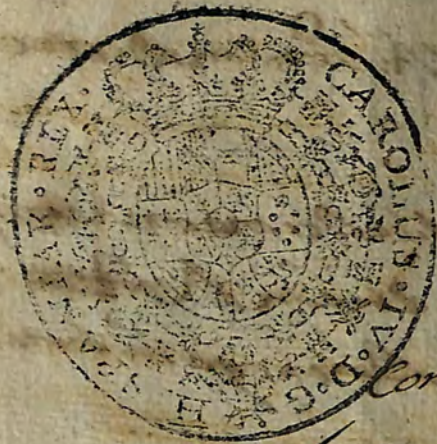 CAROLUS · IV · D · G ·
HISPANIAR · REX ·